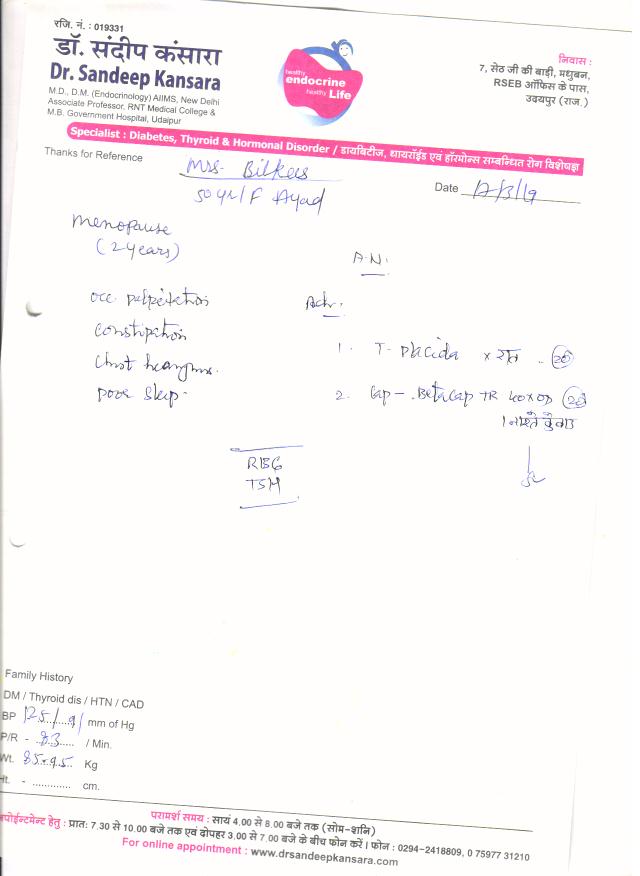 रजि. नं. : 019331
डॉ. संदीप कंसारा
Dr. Sandeep Kansara
M.D., D.M. (Endocrinology) AIIMS, New Delhi
Associate Professor, RNT Medical College &
M.B. Government Hospital, Udaipur
healthy
endocrine
healthy Life
निवास :
7, सेठ जी की बाड़ी, मधुबन,
RSEB ऑफिस के पास,
उदयपुर (राज.)
Specialist : Diabetes, Thyroid & Hormonal Disorder / डायबिटीज, थायरॉईड एवं हॉरमोन्स सम्बन्धित रोग विशेषज्ञ
Thanks for Reference
Mrs. Bilkes
50 yr/F Ayad
Date 12/3/19
Menopause
(2 years)
A.N.
occ palpitation
Adv.
constipation
1. T- Placida x रात
Chest
poor sleep
2. Cap - BetaCap TR 40 x OD
RBG
TSH
Family History
DM / Thyroid dis / HTN / CAD
BP 125/91 mm of Hg
P/R - 83 / Min.
Wt. 85.95 Kg
Ht. - ............. cm.
परामर्श समय : सायं 4.00 से 8.00 बजे तक (सोम-शनि)
पोईन्टमेन्ट हेतु : प्रातः 7.30 से 10.00 बजे तक एवं दोपहर 3.00 से 7.00 बजे के बीच फोन करें । फोन : 0294-2418809, 0 75977 31210
For online appointment : www.drsandeepkansara.com